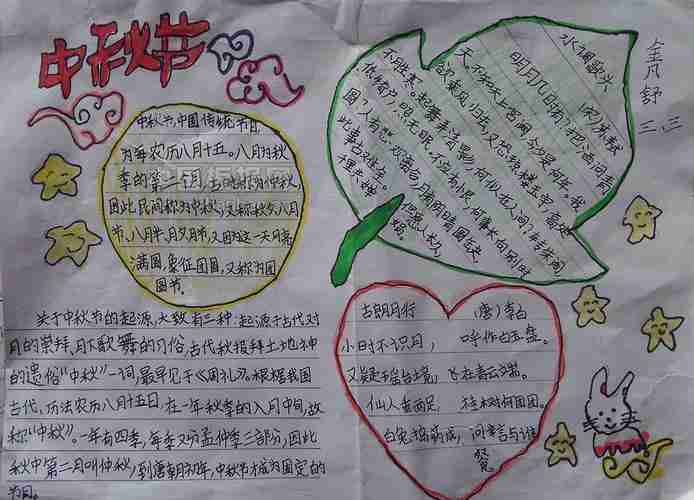 中秋节
中秋节,中国传统节日,
为每农历八月十五。八月为秋
季的第二个月,古时称为仲秋,
因此民间称为中秋,又称秋夕、八月
节、八月半、月夕、月节,又因为这一天月亮
满圆,象征团圆,又称为团
圆节。
水调歌头
(宋)苏轼
明月几时有?把酒问青
天,不知天上宫阙,今夕是何年。我
欲乘风归去,又恐琼楼玉宇,高处
不胜寒。起舞弄清影,何似在人间?转朱阁
低绮户,照无眠。不应有恨,何事长向别时
圆?人有悲欢离合,月有阴晴圆缺
此事古难全。但愿人长久
千里共婵娟。
凡舒
三.三
关于中秋节的起源,大致有三种:起源于古代对
月的崇拜、月下歌舞的习俗,古代秋报拜土地神
的遗俗“中秋”一词,最早见于《周礼》。根据我国
古代、历法农历八月十五日,在一年秋季的八月中旬,故
称“中秋”。一年有四季,每季又分孟仲季三部分,因此
秋中第二月叫仲秋,到唐朝初年,中秋节才成为固定的
节日。
古朗月行 (唐)李白
小时不识月, 呼作白玉盘。
又疑瑶台镜, 飞在青云端。
仙人垂两足, 桂树何团团。
白兔捣药成, 问言与谁
餐